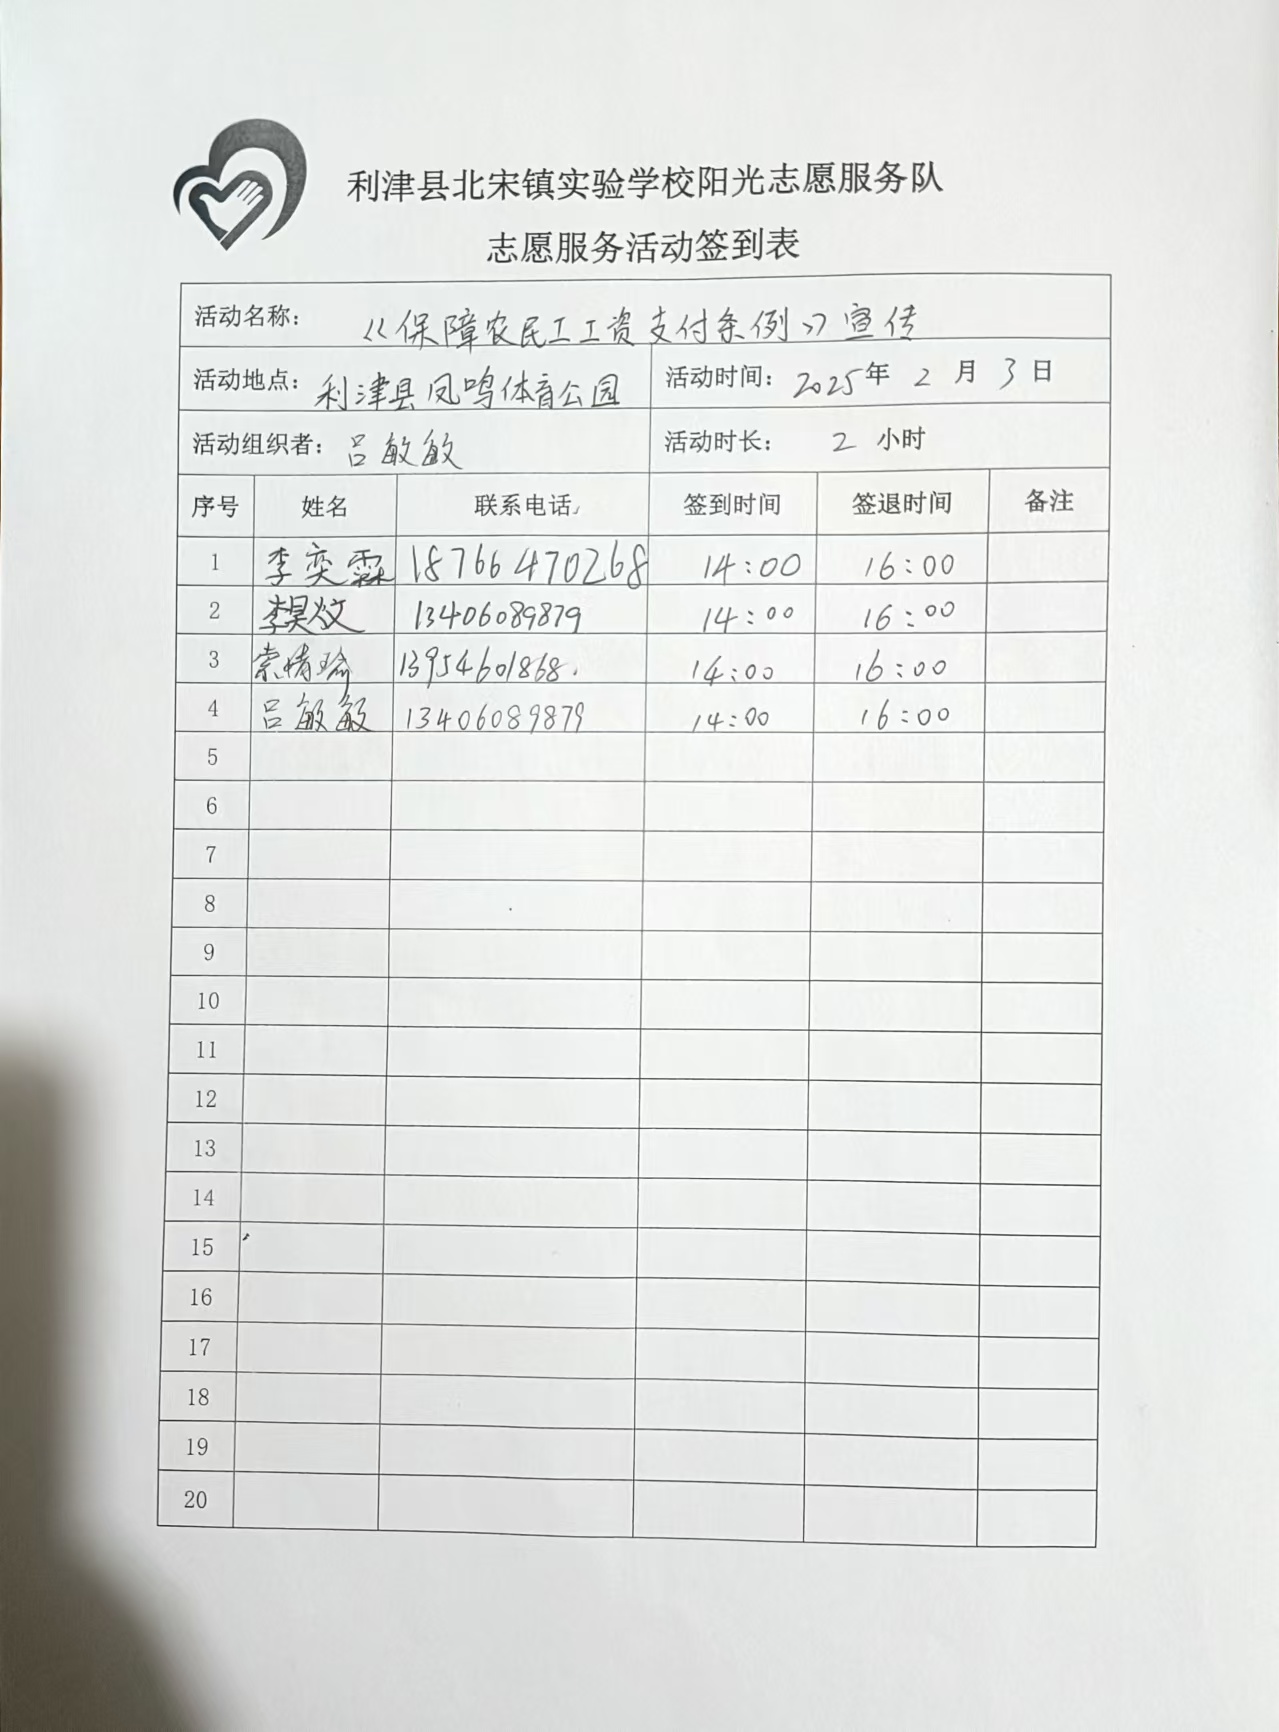 利津县北宋镇实验学校阳光志愿服务队
志愿服务活动签到表
活动名称: 《保障农民工工资支付条例》宣传
活动地点: 利津县凤鸣体育公园 活动时间: 2025年 2 月 3 日
活动组织者: 吕敏敏 活动时长: 2 小时
序号 姓名 联系电话 签到时间 签退时间 备注
1 李奕霖 18766470268 14:00 16:00
2 李昊炆 13406089879 14:00 16:00
3 13954601868. 14:00 16:00
4 吕敏敏 13406089879 14:00 16:00
5
6
7
8
9
10
11
12
13
14
15
16
17
18
19
20